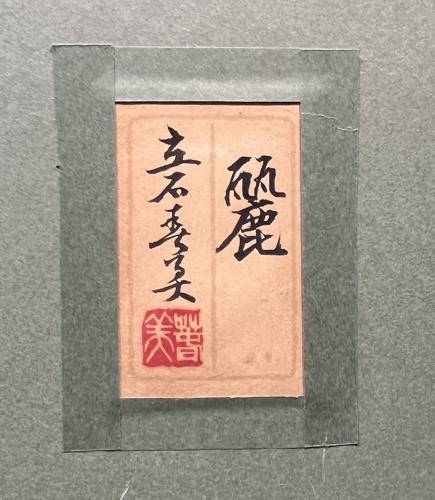 麗
立石春美
春美